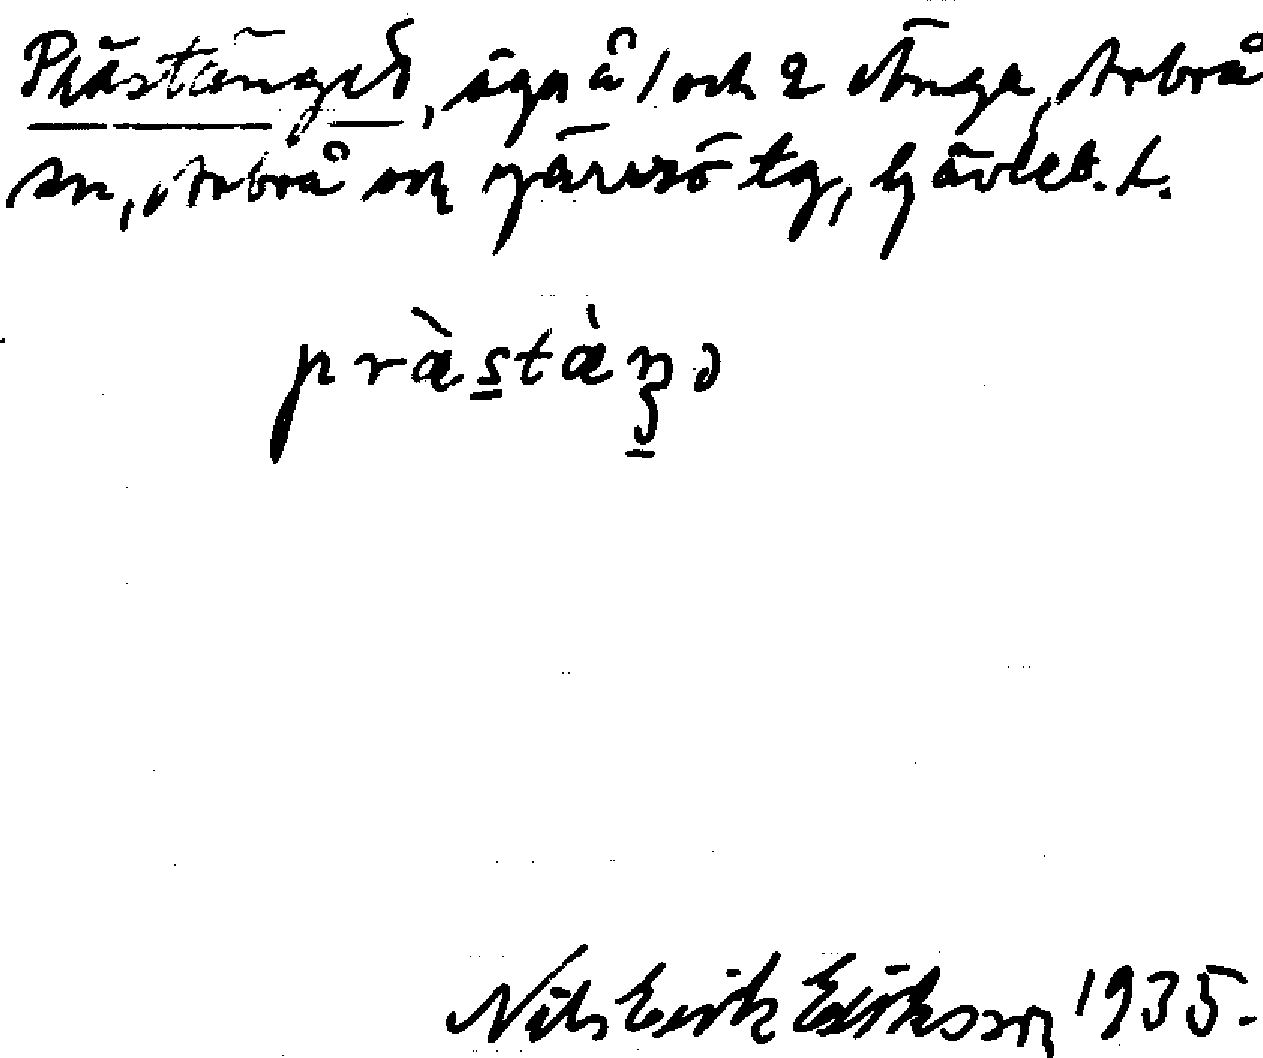 Prästänget, ägor å 1 och 2 Änga, Arbrå
sn, Arbrå och Järvsö tg, Gävleb. L.
præ̀stæ̀ŋə
Nils Erik Eriksson 1935.